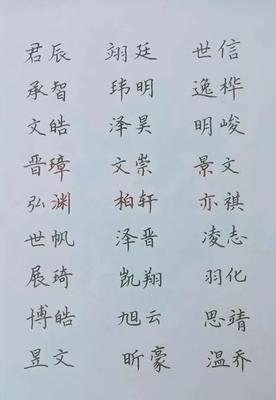 君辰 翊廷 世信
承智 玮明 逸桦
文皓 泽昊 明峻
晋璋 文崇 景文
弘渊 柏轩 亦祺
世帆 泽晋 凌志
展琦 凯翔 羽化
博皓 旭云 思靖
昱文 昕豪 温乔